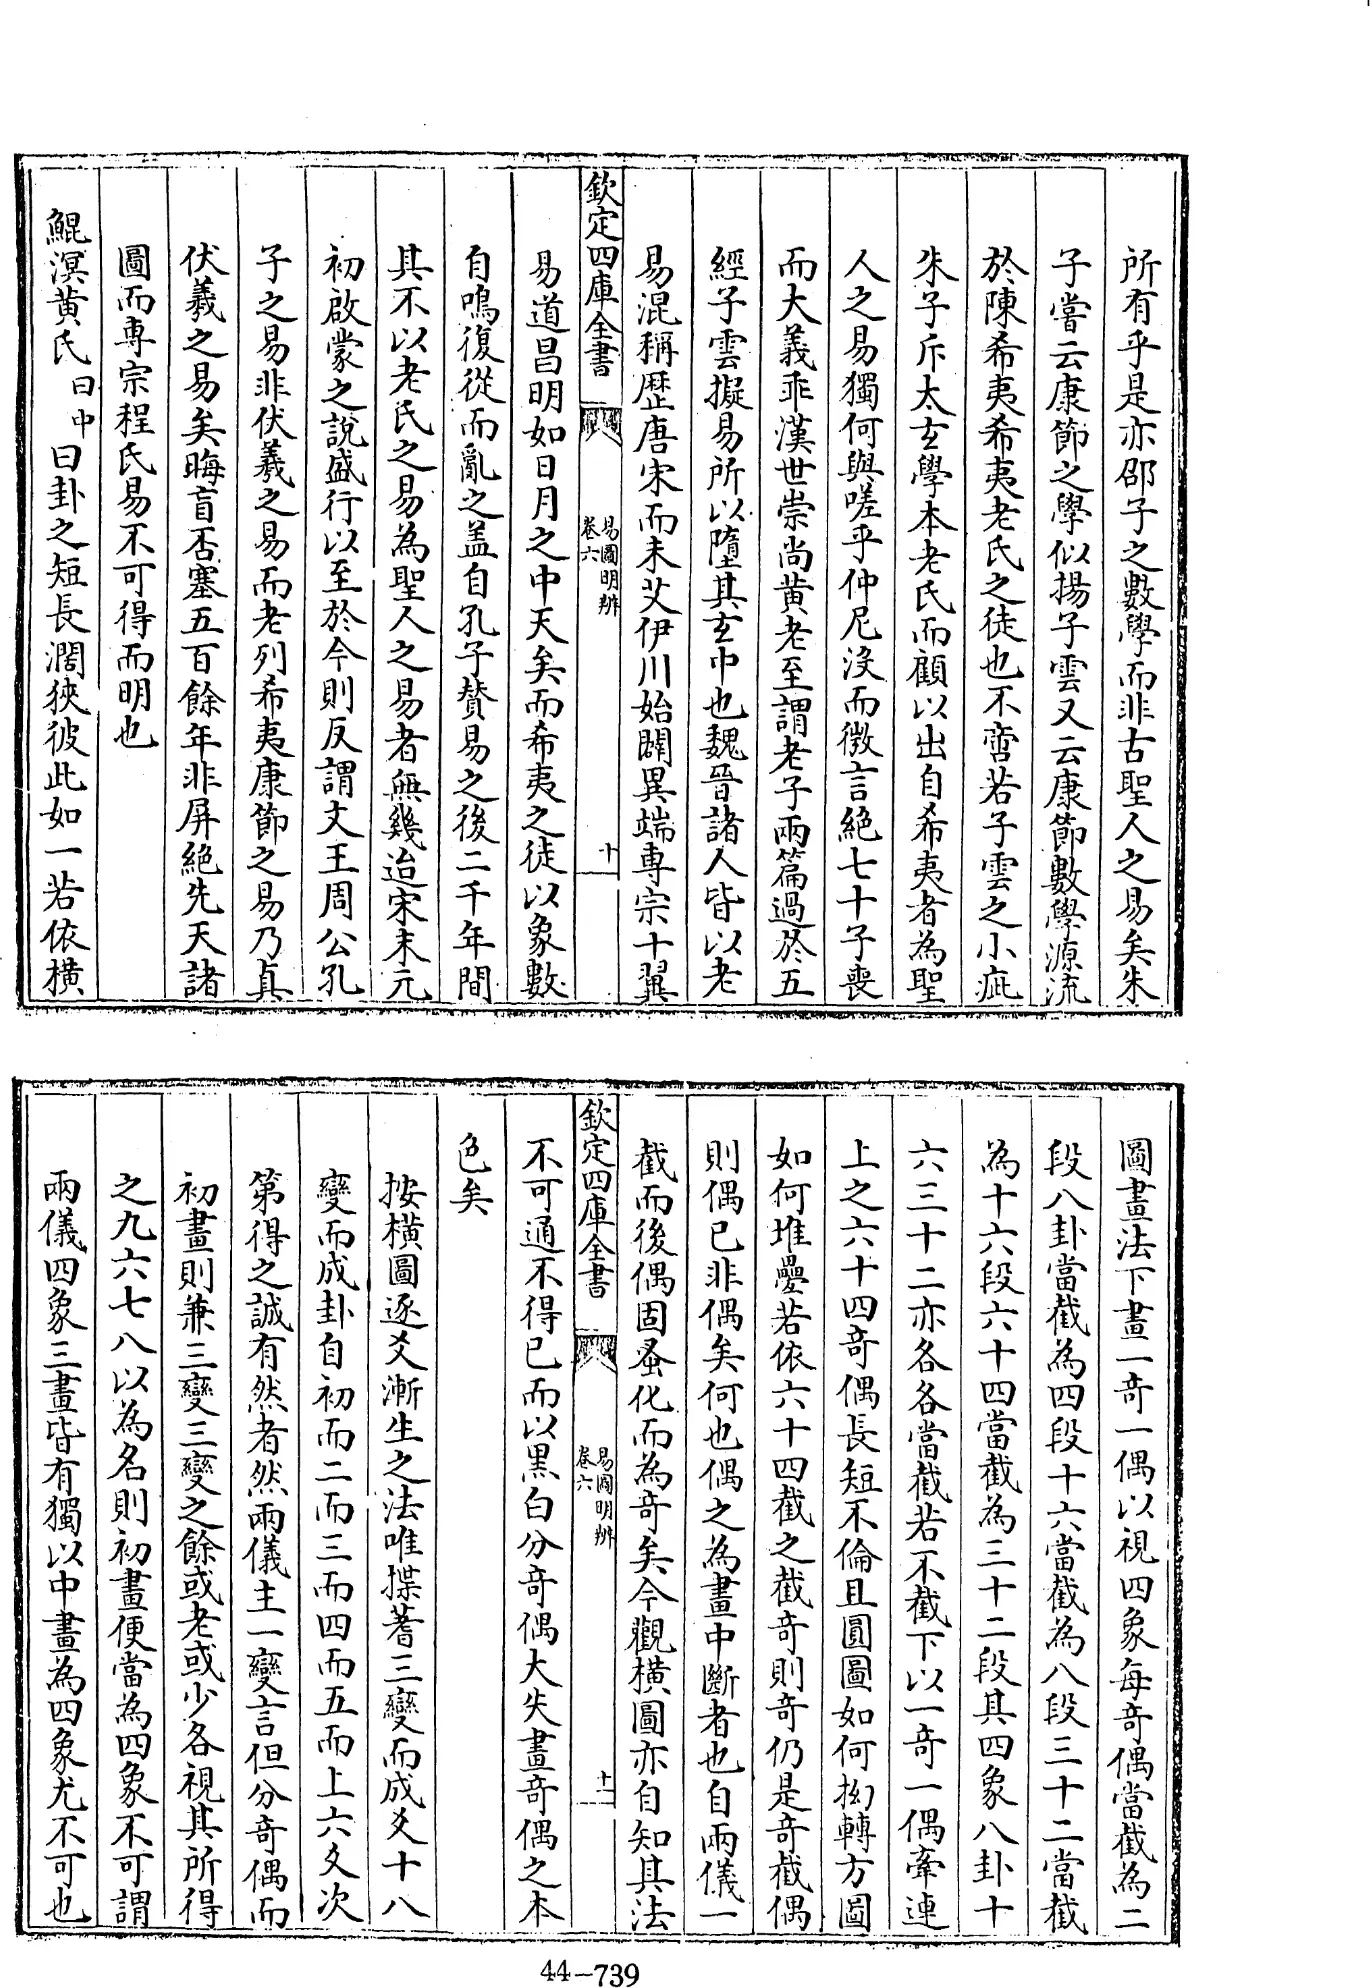 所有乎是亦邵子之數學而非古聖人之易矣朱
子嘗云康節之學似揚子雲又云康節數學源流
於陳希夷希夷老氏之徒也不啻若子雲之小疵
朱子斥太玄學本老氏而顧以出自希夷者為聖
人之易獨何與嗟乎仲尼没而微言絶七十子喪
而大義乖漢世崇尚黄老至謂老子兩篇過於五
經子雲擬易所以隨其玄中也魏晉諸人皆以老
易混稱歴唐宋而未艾伊川始闢異端専宗十翼
欽定四庫全書
易圖明辨
卷六
十
易道昌明如日月之中天矣而希夷之徒以象數
自鳴復從而亂之蓋自孔子賛易之後二千年間
其不以老氏之易為聖人之易者無幾迨宋末元
初啟蒙之説盛行以至於今則反謂文王周公孔
子之易非伏羲之易而老列希夷康節之易乃真
伏羲之易矣晦盲否塞五百餘年非屏絶先天諸
圖而専宗程氏易不可得而明也
鯤溟黄氏曰中曰卦之短長濶狹彼此如一若依横
圖畫法下畫一竒一偶以視四象每竒偶當截為二
段八卦當截為四段十六當截為八段三十二當截
為十六段六十四當截為三十二段其四象八卦十
六三十二亦各各當截若不截下以一竒一偶牽連
上之六十四竒偶長短不倫且圓圖如何拗轉方圖
如何堆疊若依六十四截之截竒則竒仍是竒截偶
則偶已非偶矣何也偶之為畫中斷者也自兩儀一
截而後偶固蚤化而為竒矣今觀横圖亦自知其法
欽定四庫全書
易圖明辨
卷六
十一
不可通不得已而以黒白分竒偶大失畫竒偶之本
色矣
按横圖逐爻漸生之法唯揲蓍三變而成爻十八
變而成卦自初而二而三而四而五而上六爻次
第得之誠有然者然兩儀主一變言但分竒偶而
初畫則兼三變三變之餘或老或少各視其所得
之九六七八以為名則初畫便當為四象不可謂
兩儀四象三畫皆有獨以中畫為四象尤不可也
44-739